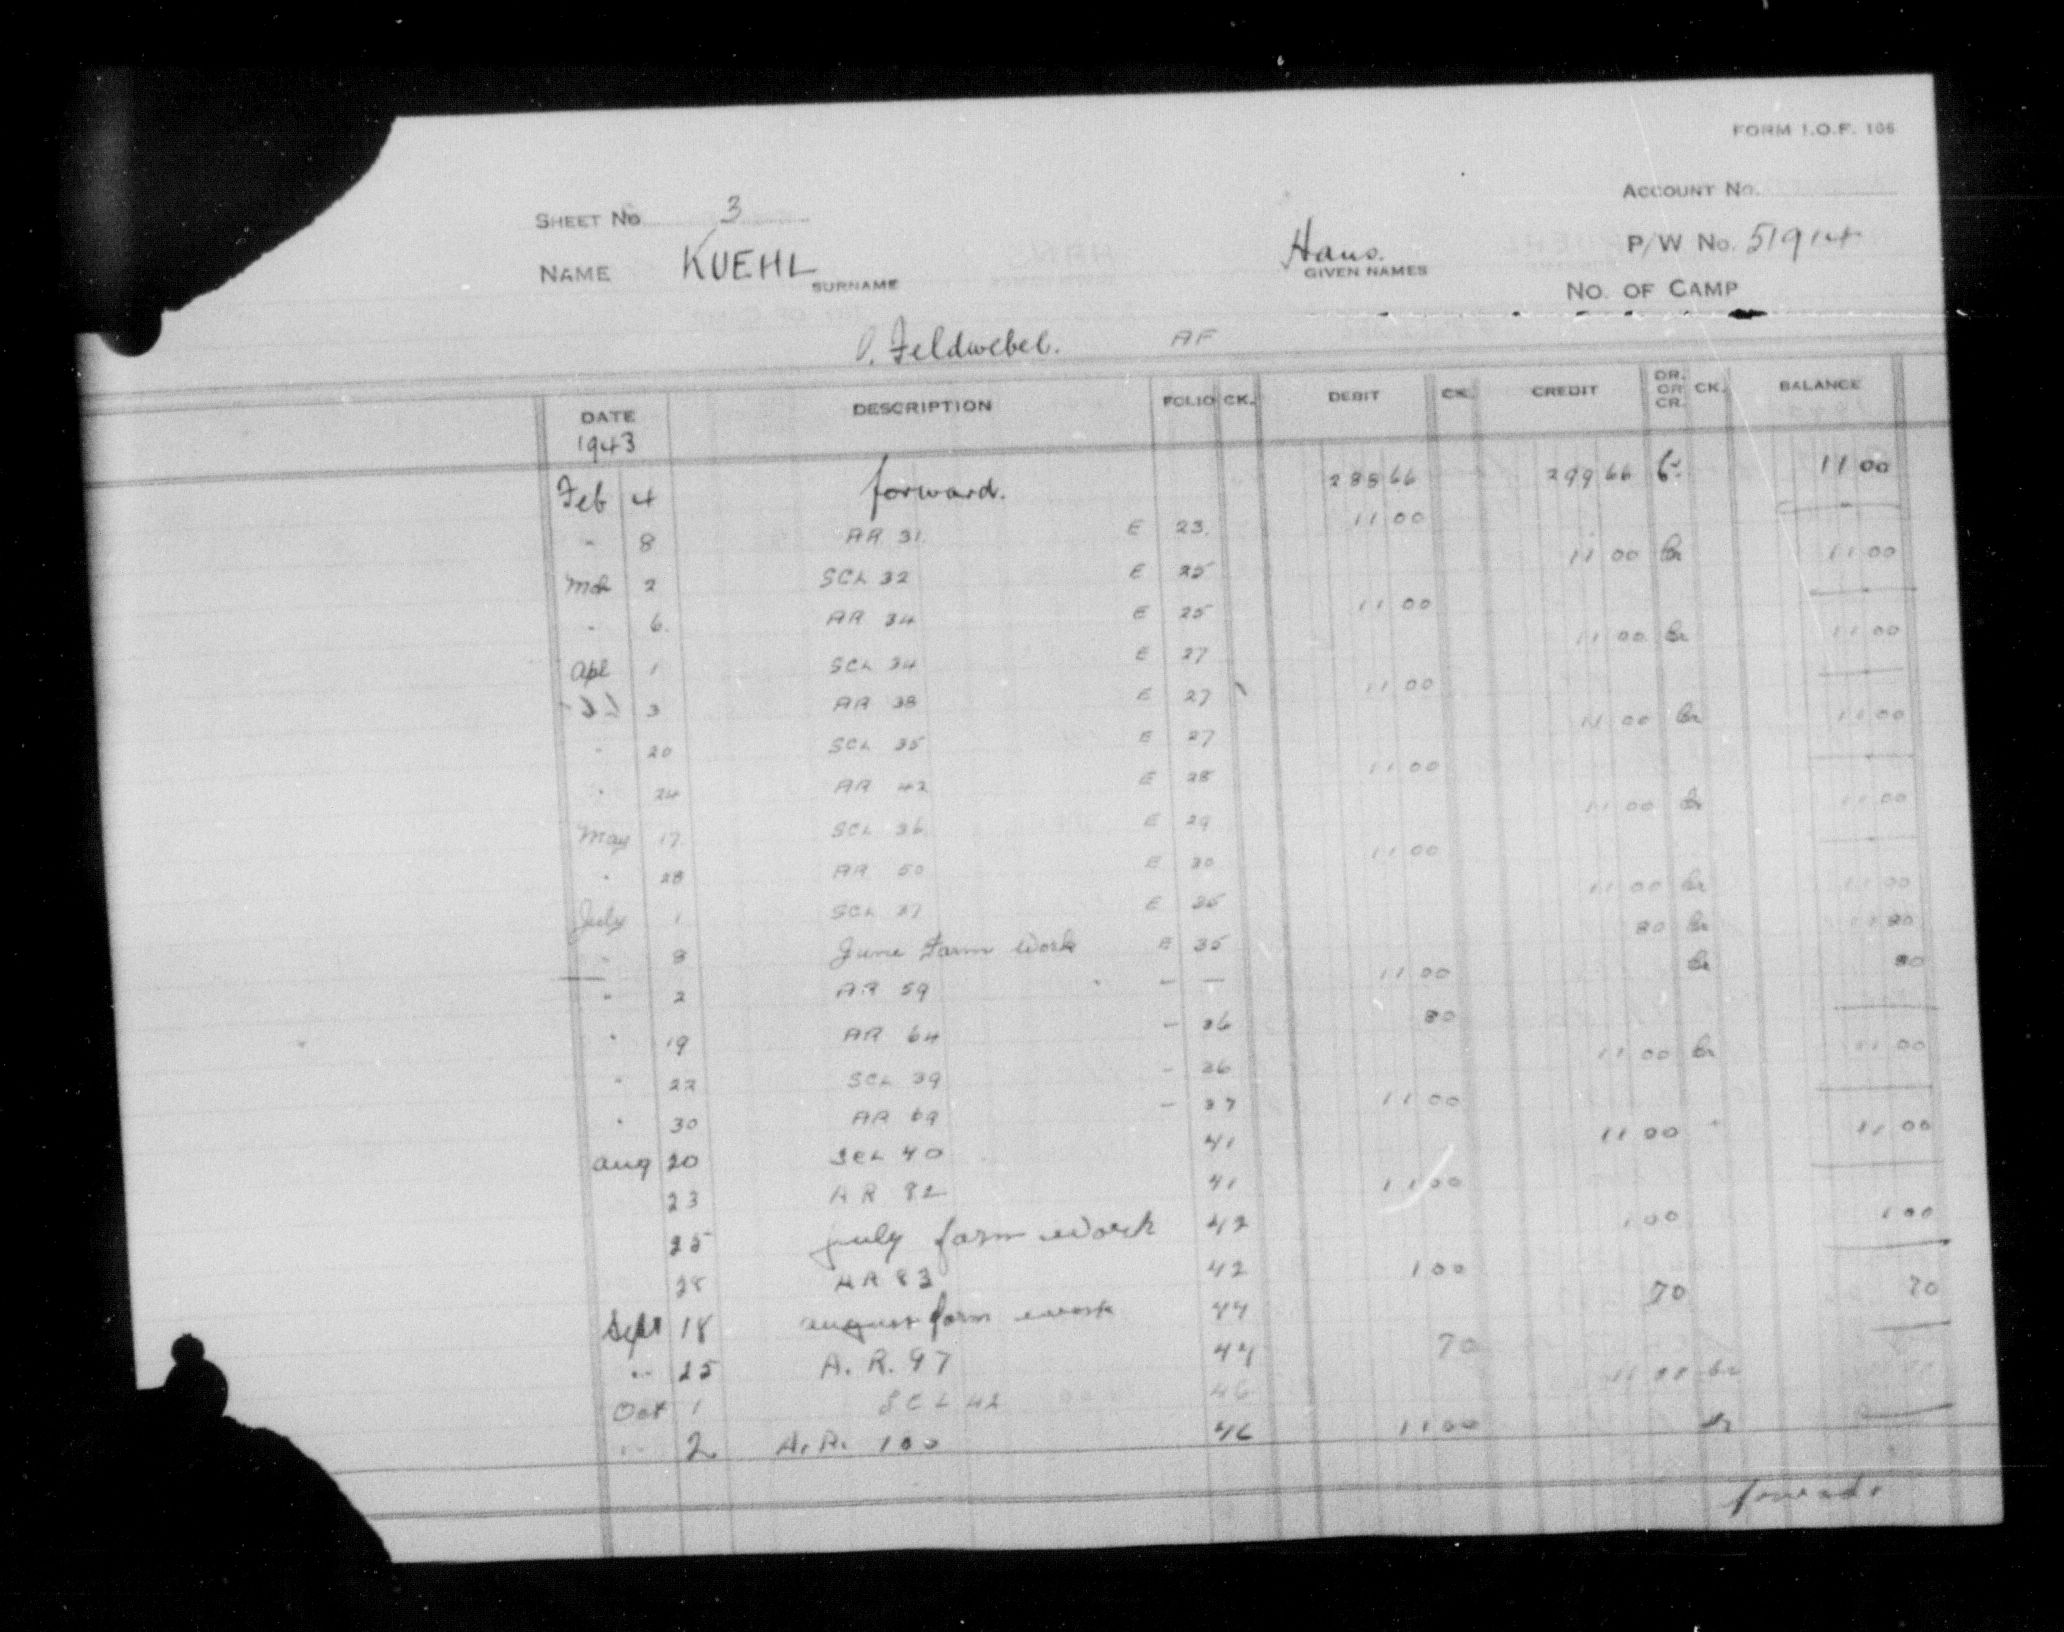 FORM I.O.F. 106
SHEET No 3 ACCOUNT No.
NAME KUEHL SURNAME Hans. GIVEN NAMES P/W No. 51914
NO. OF CAMP
O. Feldwebel. AF
DATE DESCRIPTION FOLIO CK. DEBIT CK. CREDIT DR. OR CR. CK. BALANCE
1943
Feb 4 forward. 288 66 299 66 Cr 11 00
" 8 AR 31 E 23. 11 00
Mch 2 SCL 32 E 25 11 00 Cr 11 00
" 6. AR 34 E 25 11 00
Apl 1 SCL 34 E 27 11 00 Cr 11 00
3 AR 38 E 27 11 00
" 20 SCL 35 E 27 11 00 Cr 11 00
" 24 AR 42 E 28 11 00
May 17 SCL 36 E 29 11 00 Cr 11 00
" 28 AR 50 E 30 11 00
July 1 SCL 37 E 35 11 00 Cr 11 00
" 8 June Farm Work E 35 80 Cr 11 80
" 2 AR 59 - — 11 00 Cr 80
" 19 AR 64 - 36 80
" 22 SCL 39 - 36 11 00 Cr 11 00
" 30 AR 69 - 37 11 00
Aug 20 SCL 40 41 11 00 " 11 00
23 AR 82 41 11 00
25 July farm work 42 1 00 1 00
28 AR 83 42 1 00
Sept 18 august farm work 44 70 70
" 25 A. R. 97 44 70
Oct 1 SCL 42 46 11 00 Cr
" 2 A. R. 100 46 11 00
forward.